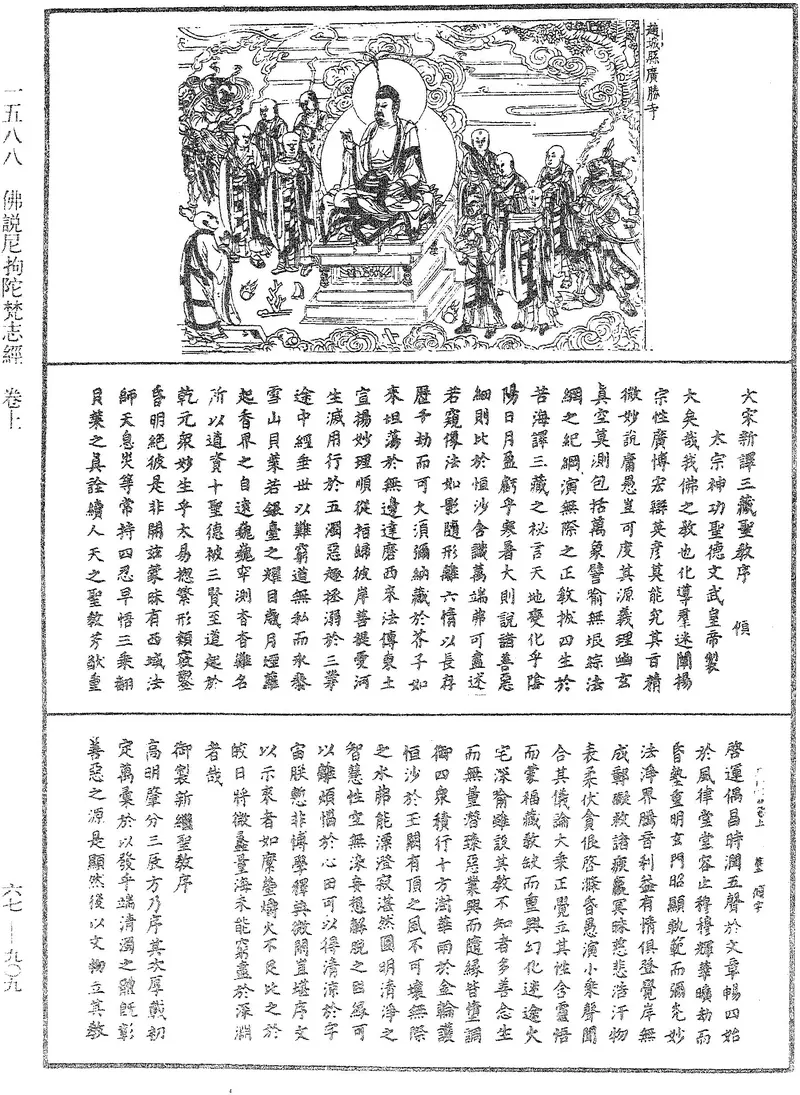 趙城縣廣勝寺
大宋新譯三藏聖教序 傾
太宗神功聖德文武皇帝製
大矣哉我佛之教也化導羣迷闡揚
宗性廣博宏辯英彥莫能究其旨精
微妙說庸愚豈可度其源義理幽玄
真空莫測包括萬象譬喻無垠綜法
網之紀綱演無際之正教拔四生於
苦海譯三藏之祕言天地變化乎陰
陽日月盈虧乎寒暑大則說諸善惡
細則比於恒沙含識萬端弗可盡述
若窺像法如影隨形離六情以長存
歷千劫而可久須彌納藏於芥子如
來坦蕩於無邊達磨西來法傳東土
宣揚妙理順從指歸彼岸菩提愛河
生滅用行於五濁惡趣拯溺於三業
途中經垂世以難窮道無私而永泰
雪山貝葉若銀臺之耀目歲月煙蘿
起香界之自遠巍巍罕測杳杳難名
所以道資十聖德被三賢至道起於
乾元衆妙生乎太易揔繁形類竅鑿
昏明絕彼是非開兹蒙昧有西域法
師天息災等常持四忍早悟三乘翻
貝葉之真詮續人天之聖教芳猷重
啓運偶昌時潤五聲於文章暢四始
於風律堂堂容止穆穆輝華曠劫而
昏墊重明玄門昭顯軌範而弥光妙
法淨界騰音利益有情俱登覺岸無
成郵礙救諸疲羸冥昧慈悲浩汗物
表柔伏貪佷啓滌昏愚演小乘聲聞
合其儀論大乘正覺立其性含靈悟
而蒙福藏教缺而重興幻化迷途火
宅深喻雖設其教不知者多善念生
而無量潛臻惡業興而隨緣皆墮調
御四衆積行十方澍華雨於金輪護
恒沙於玉闕有頂之風不可壞無際
之水弗能漂澄寂湛然圓明清淨之
智慧性空無染妄想解脫之因緣可
以離煩惱於心田可以得清涼於宇
宙朕慙非博學釋典微閑豈堪序文
以示來者如縻螢爝火不足比之於
皎日將微蠡量海未能窮盡於深淵
者哉
御製新繼聖教序
高明肇分三辰方乃序其次厚載初
定萬彙於以發乎端清濁之體既彰
善惡之源是顯然後以文物立其教
一五八八 佛説尼拘陀梵志經 卷上
六七—九〇九